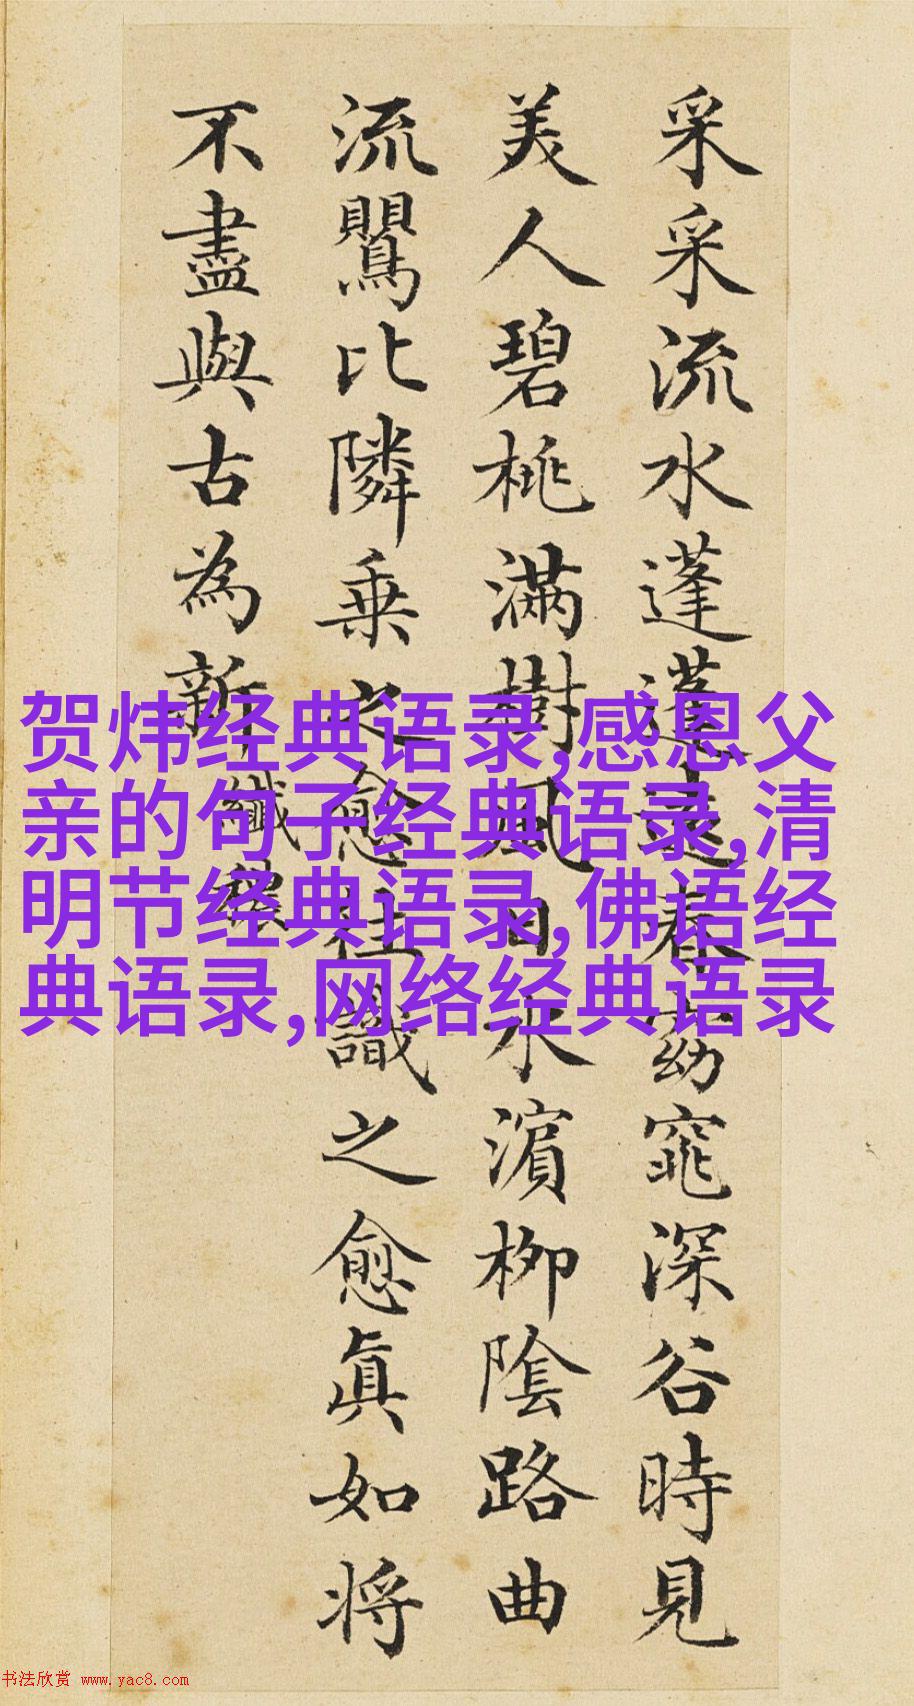 采采流水蓬蓬遠春窈窕深谷時見
美人碧桃滿樹風日水濱柳陰路曲
流鸎比隣乗之愈往識之愈眞如将
不盡與古為新 纖穠
贺炜经典语录,感恩父
亲的句子经典语录,清
明节经典语录,佛语经
典语录,网络经典语录
书法欣赏 www.yac8.com